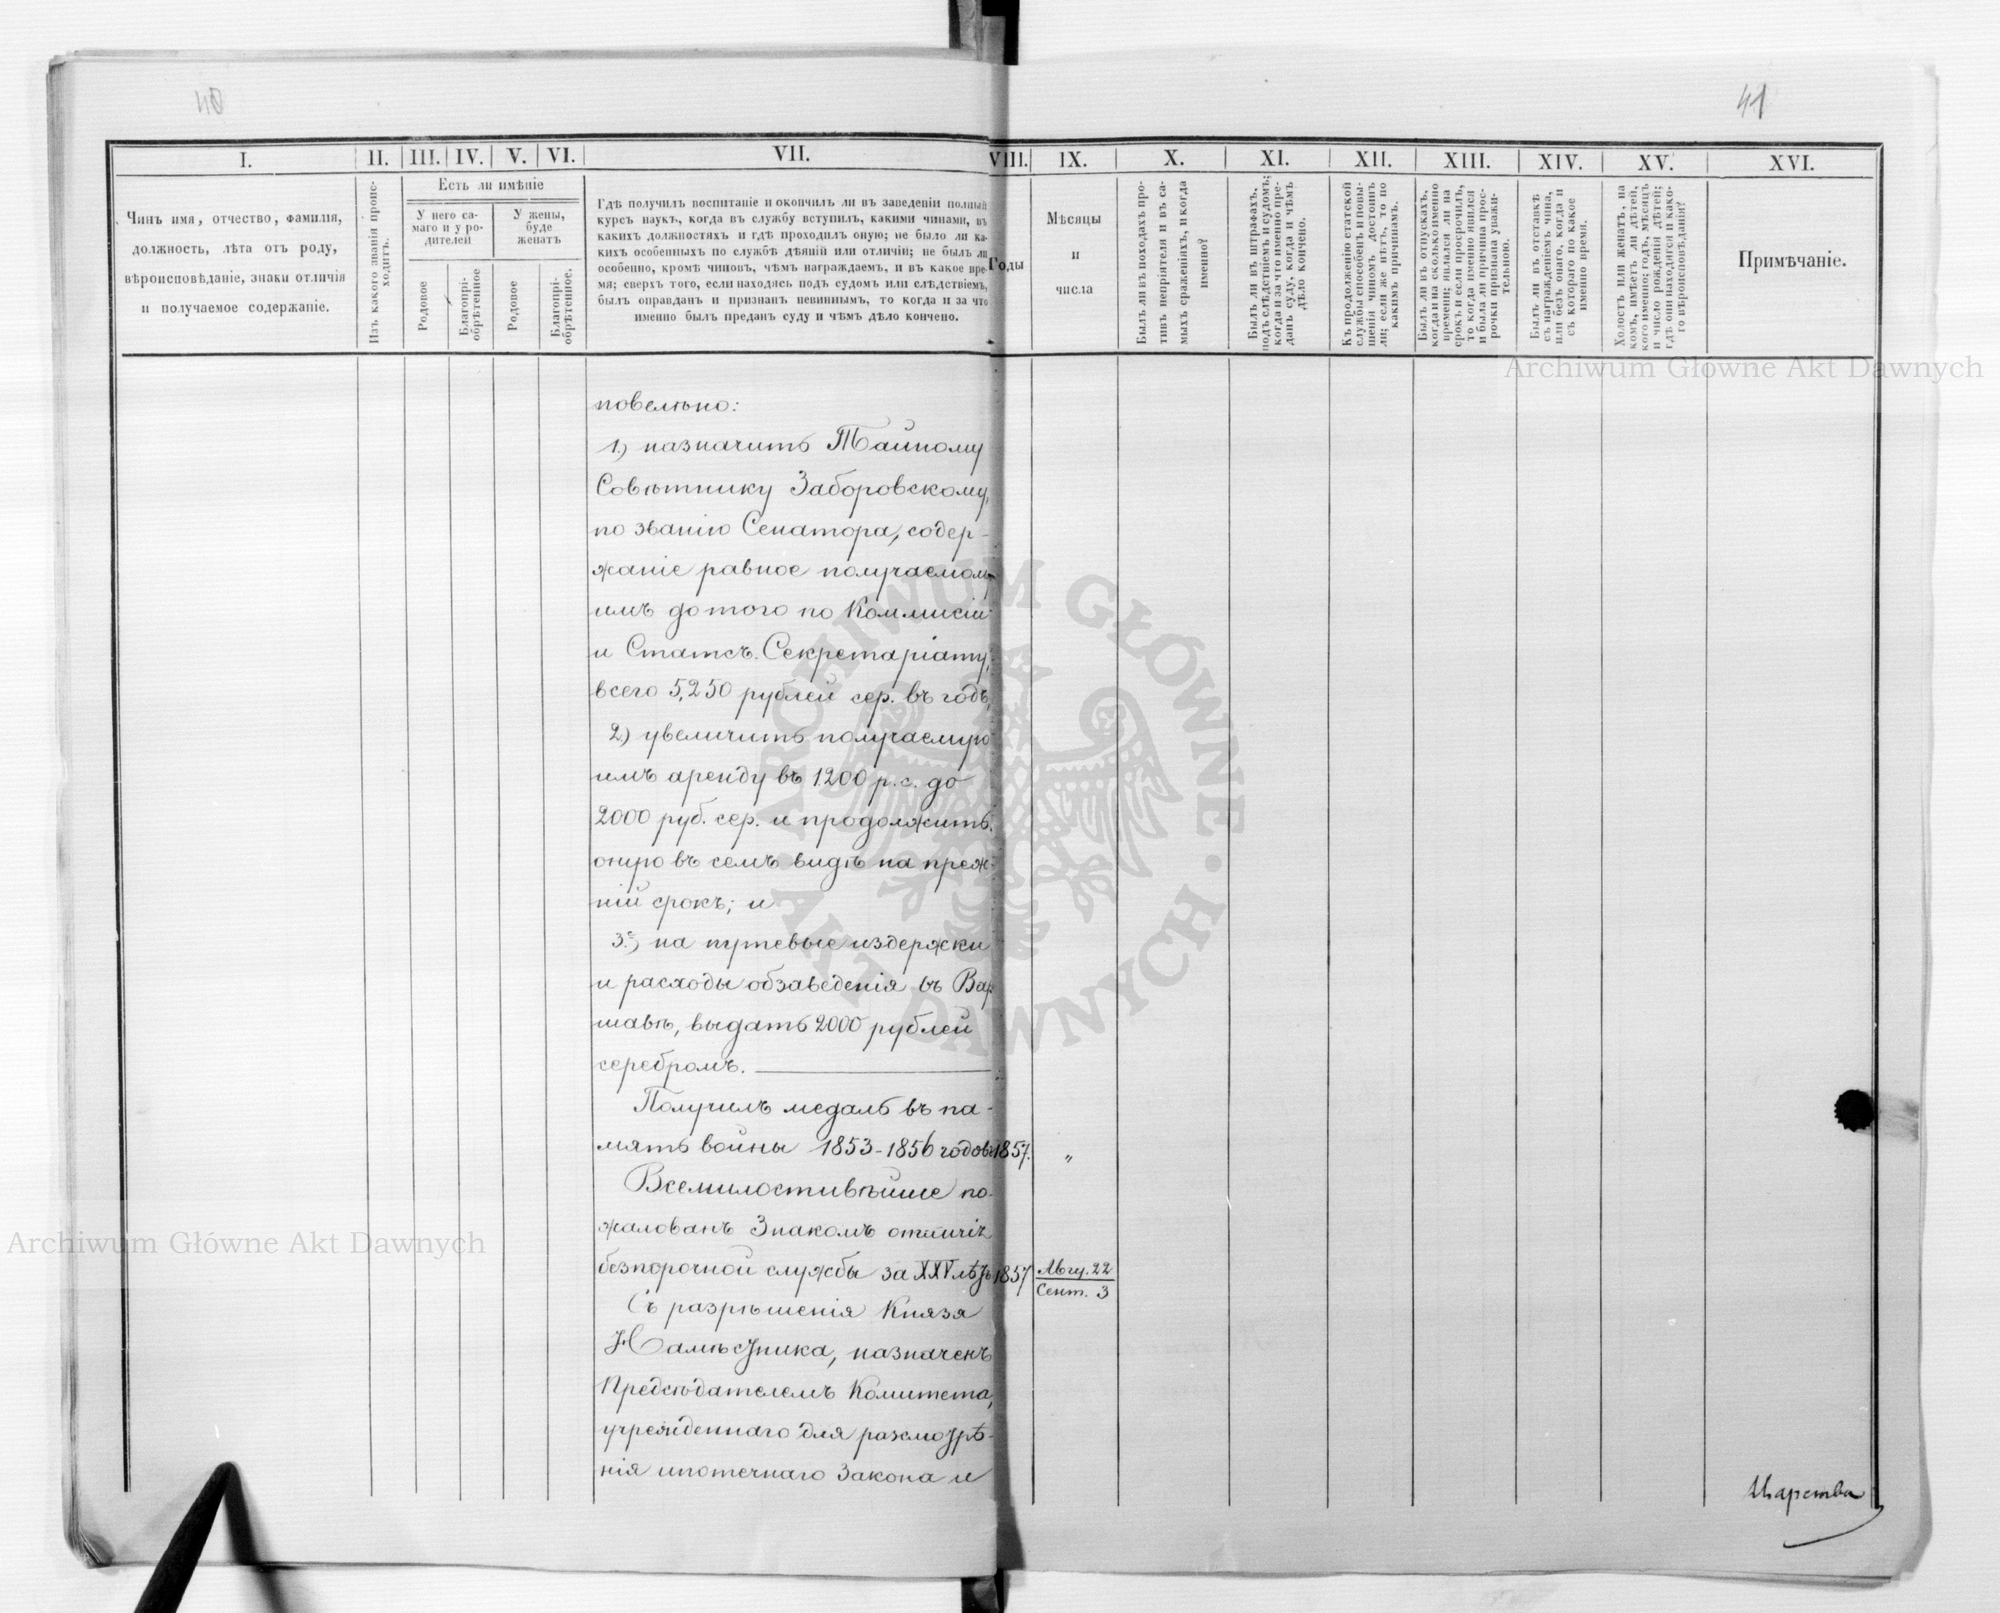 40
41
I.
II.
III.
IV.
V.
VI.
VII.
VIII.
IX.
X.
XI.
XII.
XIII.
XIV.
XV.
XVI.
Чинъ имя, отчество, фамилія,
должность, лѣта отъ роду,
вѣроисповѣданіе, знаки отличія
и получаемое содержаніе.
Изъ какого званія проис-
ходитъ.
Есть ли имѣніе
У него са-
маго и у ро-
дителей
У жены,
буде
женатъ
Родовое
Благопрі-
обрѣтенное
Родовое
Благопрі-
обрѣтенное.
Гдѣ получилъ воспитаніе и окончилъ ли въ заведеніи полный
курсъ наукъ, когда въ службу вступилъ, какими чинами, въ
какихъ должностяхъ и гдѣ проходилъ оную; не было ли ка-
кихъ особенныхъ по службѣ дѣяній или отличій; не былъ ли
особенно, кромѣ чиновъ, чѣмъ награждаемъ, и въ какое вре-
мя; сверхъ того, если находясь подъ судомъ или слѣдствіемъ,
былъ оправданъ и признанъ невиннымъ, то когда и за что
именно былъ преданъ суду и чѣмъ дѣло кончено.
Годы
Мѣсяцы
и
числа
Былъ ли въ походахъ про-
тивъ непріятеля и въ са-
мыхъ сраженіяхъ, и когда
именно?
Былъ ли въ штрафахъ,
подъ слѣдствіемъ и судомъ;
когда и за что именно пре-
данъ суду, когда и чѣмъ
дѣло кончено.
Къ продолженію статской
службы способенъ и повы-
шенія чиномъ достоинъ
ли; если же нѣтъ, то по
какимъ причинамъ.
Былъ ли въ отпускахъ,
когда и на сколько именно
времени; явлался ли на
срокъ и если просрочилъ,
то когда именно явился
и была ли причина прос-
рочки признана уважи-
тельною.
Былъ ли въ отставкѣ
съ награжденіемъ чина,
или безъ онаго, когда и
съ котораго по какое
именно время.
Холостъ или женатъ, на
комъ, имѣетъ ли дѣтей,
кого именно; годъ, мѣсяцъ
и число рожденія дѣтей;
гдѣ они находятся и како-
го вѣроисповѣданія?
Примѣчаніе.
повелѣно:
1.) назначить Тайному
Совѣтнику Заборовскому,
по званію Сенатора, содер-
жаніе равное получаемому
имъ до того по Коммисіи
и Статсъ. Секретаріату,
всего 5,250 рублей сер. въ годъ,
2.) увеличить получаемую
имъ аренду въ 1200 р. с. до
2000 руб. сер. и продолжить
оную въ семъ видѣ на преж-
ній срокъ; и
3.) на путевые издержки
и расходы обзаведенія въ Вар-
шавѣ, выдать 2000 рублей
серебромъ.
Получилъ медаль въ па-
мять войны 1853-1856 годовъ 1857. "
Всемилостивѣйше по-
жалованъ Знакомъ отличія
безпорочной службы за XXV лѣтъ 1857 Авгу. 22
Сент. 3
Съ разрѣшенія Князя
Намѣстника, назначенъ
Предсѣдателемъ Комитета,
учрежденнаго для разсмотрѣ-
нія ипотечнаго Закона и
Царства
Archiwum Główne Akt Dawnych
Archiwum Główne Akt Dawnych
ARCHIWUM GŁÓWNE · AKT DAWNYCH ·